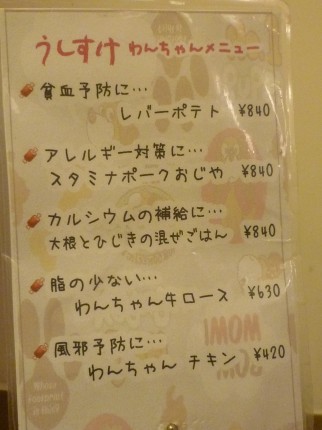 うしすけ わんちゃんメニュー
貧血予防に…
レバーポテト ¥840
アレルギー対策に…
スタミナポークおじや ¥840
カルシウムの補給に…
大根とひじきの混ぜごはん ¥840
脂の少ない…
わんちゃん牛ロース ¥630
風邪予防に…
わんちゃん チキン ¥420